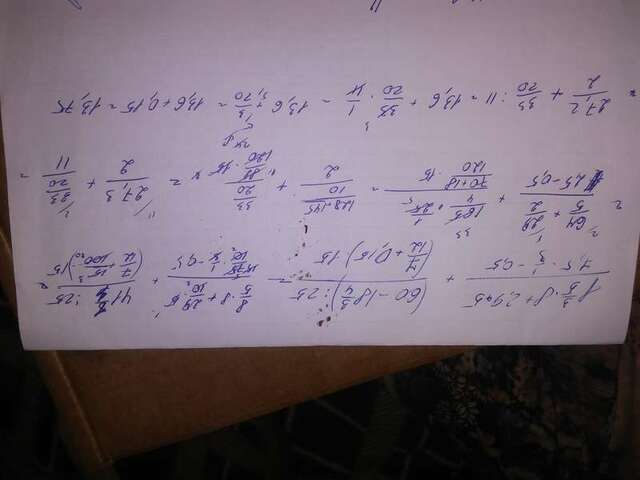 (1 3/5 · 8 + 2,9·5)/(7,5 · 1/3 - 0,5) + ((60 - 18 3/4) : 25)/((7/12 + 0,15) · 15) = (8/5 · 8 + 29/10 · 5)/(75/10 · 1/3 - 0,5) + (41 1/4 : 25)/((7/12 + 15/100) · 15) =
= (64/5 + 29/2)/(2,5 - 0,5) + (165/4 · 1/25)/((70+18)/120 · 15) = ((128+145)/10)/2 + (33/20)/(88/120 · 15) = 27,3/2 + (33/20)/11 =
= 27,2/2 + 33/20 : 11 = 13,6 + 33/20 · 1/11 = 13,6 + 3/20 = 13,6 + 0,15 = 13,75